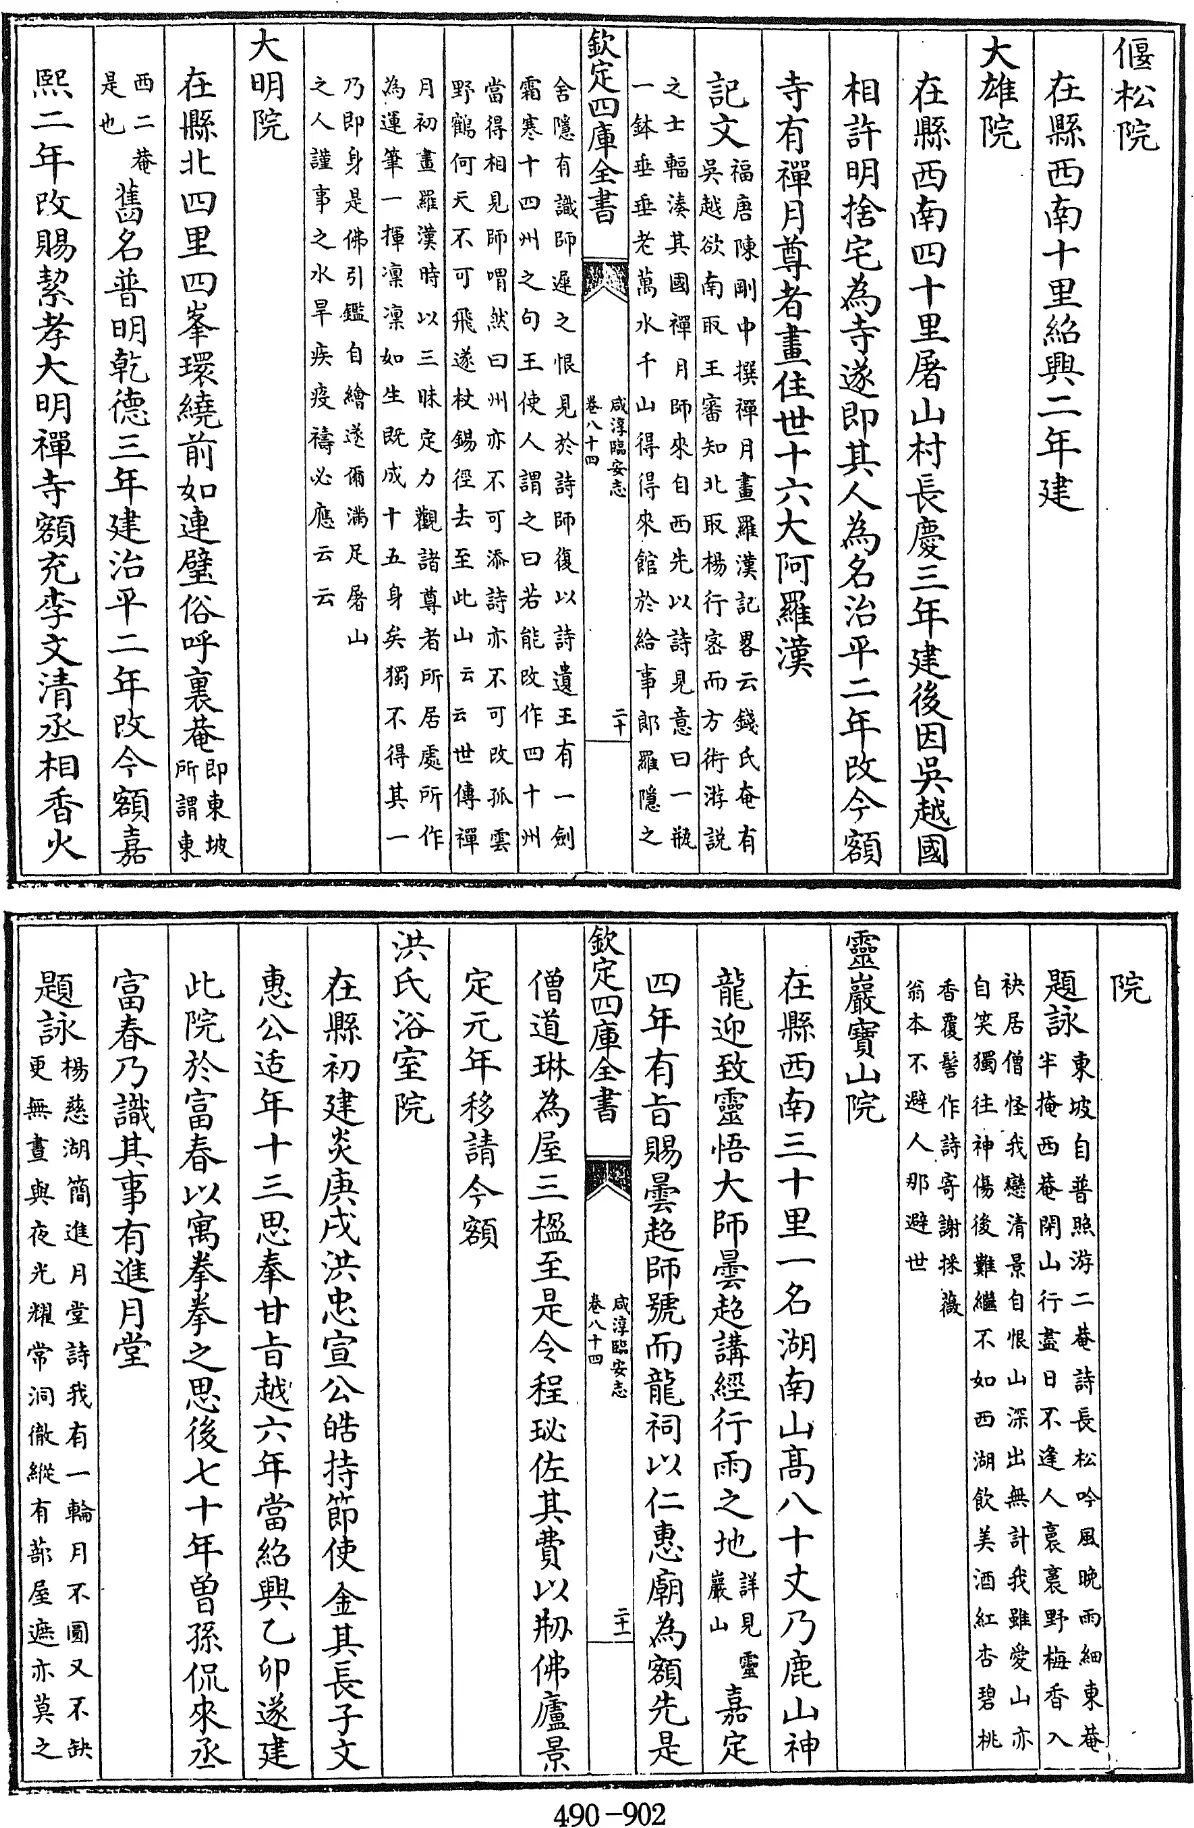 偃松院
在縣西南十里紹興二年建
大雄院
在縣西南四十里屠山村長慶三年建後因吳越國
相許明捨宅為寺遂即其人為名治平二年改今額
寺有禪月尊者畫住世十六大阿羅漢
記文福唐陳剛中撰禪月畫羅漢記畧云錢氏奄有
吳越欲南取王審知北取楊行宻而方術游說
之士輻湊其國禪月師來自西先以詩見意曰一瓶
一鉢垂垂老萬水千山得得來館於給事郎羅隱之
欽定四庫全書
咸淳臨安志
卷八十四
二十
舍隱有識師遲之恨見於詩師復以詩遺王有一劍
霜寒十四州之句王使人謂之曰若能改作四十州
當得相見師喟然曰州亦不可添詩亦不可改孤雲
野鶴何天不可飛遂杖錫徑去至此山云云世傳禪
月初畫羅漢時以三昧定力觀諸尊者所居處所作
為運筆一揮凜凜如生既成十五身矣獨不得其一
乃即身是佛引鑑自繪遂爾滿足屠山
之人謹事之水旱疾疫禱必應云云
大明院
在縣北四里四峯環繞前如連璧俗呼裏菴即東坡
所謂東
西二菴
是也舊名普明乾德三年建治平二年改今額嘉
熙二年改賜絜孝大明禪寺額充李文清丞相香火
院
題詠東坡自普照游二菴詩長松吟風晚雨細東菴
半掩西菴閉山行盡日不逢人裛裛野梅香入
袂居僧怪我戀清景自恨山深出無計我雖愛山亦
自笑獨往神傷後難繼不如西湖飲美酒紅杏碧桃
香覆髻作詩寄謝採薇
翁本不避人那避世
靈巖寶山院
在縣西南三十里一名湖南山高八十丈乃鹿山神
龍迎致靈悟大師曇超講經行雨之地詳見靈
巖山嘉定
四年有旨賜曇超師號而龍祠以仁惠廟為額先是
欽定四庫全書
咸淳臨安志
卷八十四
二十一
僧道琳為屋三楹至是令程珌佐其費以剏佛廬景
定元年移請今額
洪氏浴室院
在縣初建炎庚戌洪忠宣公皓持節使金其長子文
惠公适年十三思奉甘旨越六年當紹興乙卯遂建
此院於富春以寓拳拳之思後七十年曾孫侃來丞
富春乃識其事有進月堂
題詠楊慈湖簡進月堂詩我有一輪月不圓又不缺
更無晝與夜光耀常洞徹縱有蔀屋遮亦莫之
490-902